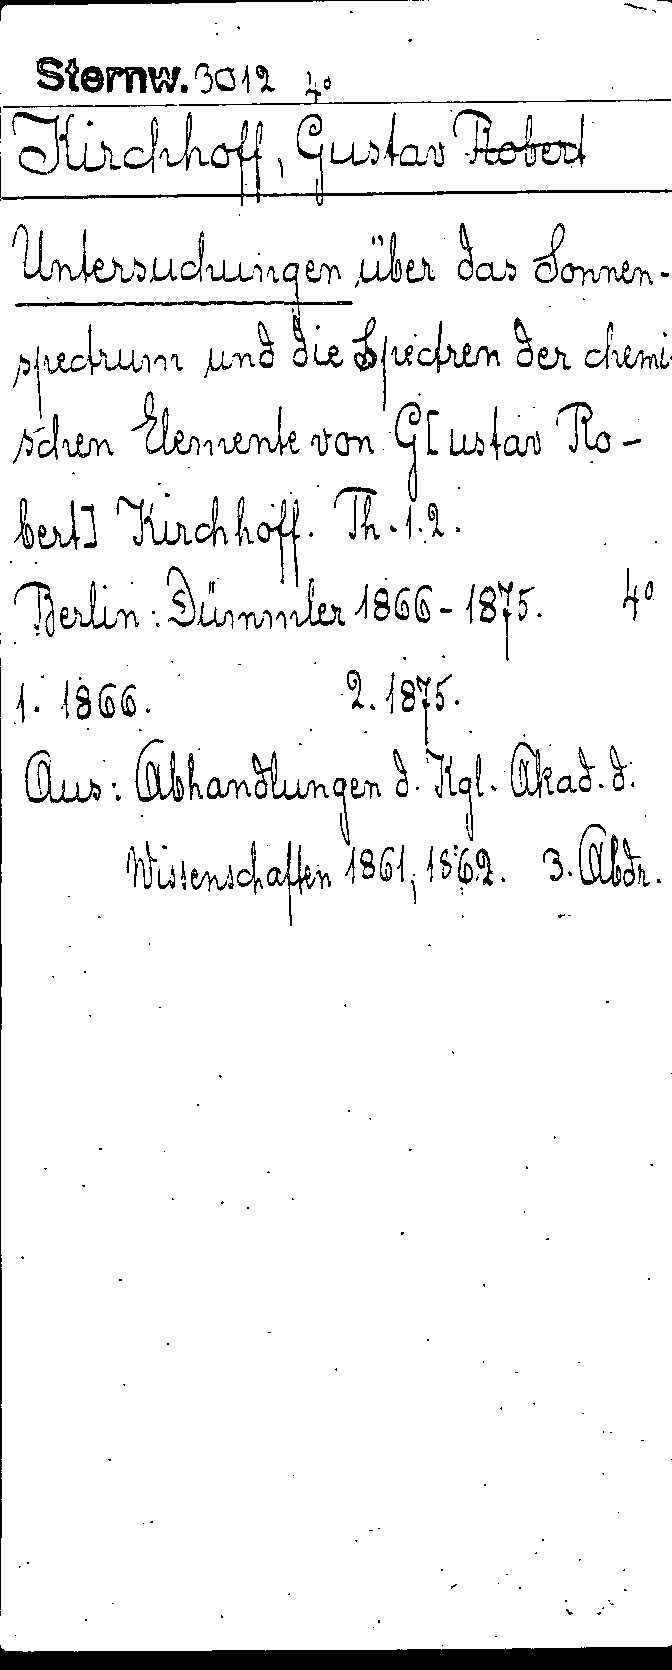 Sternw. 3012 4°
Kirchhoff, Gustav Robert
Untersuchungen über das Sonnen-
spectrum und die Spectren der chemi-
schen Elemente von G[ustav Ro-
bert] Kirchhoff. Th. 1. 2.
Berlin: Dümmler 1866-1875. 4°
1. 1866. 2. 1875.
Aus: Abhandlungen d. Kgl. Akad. d.
Wissenschaften 1861, 1862. 3. Abdr.